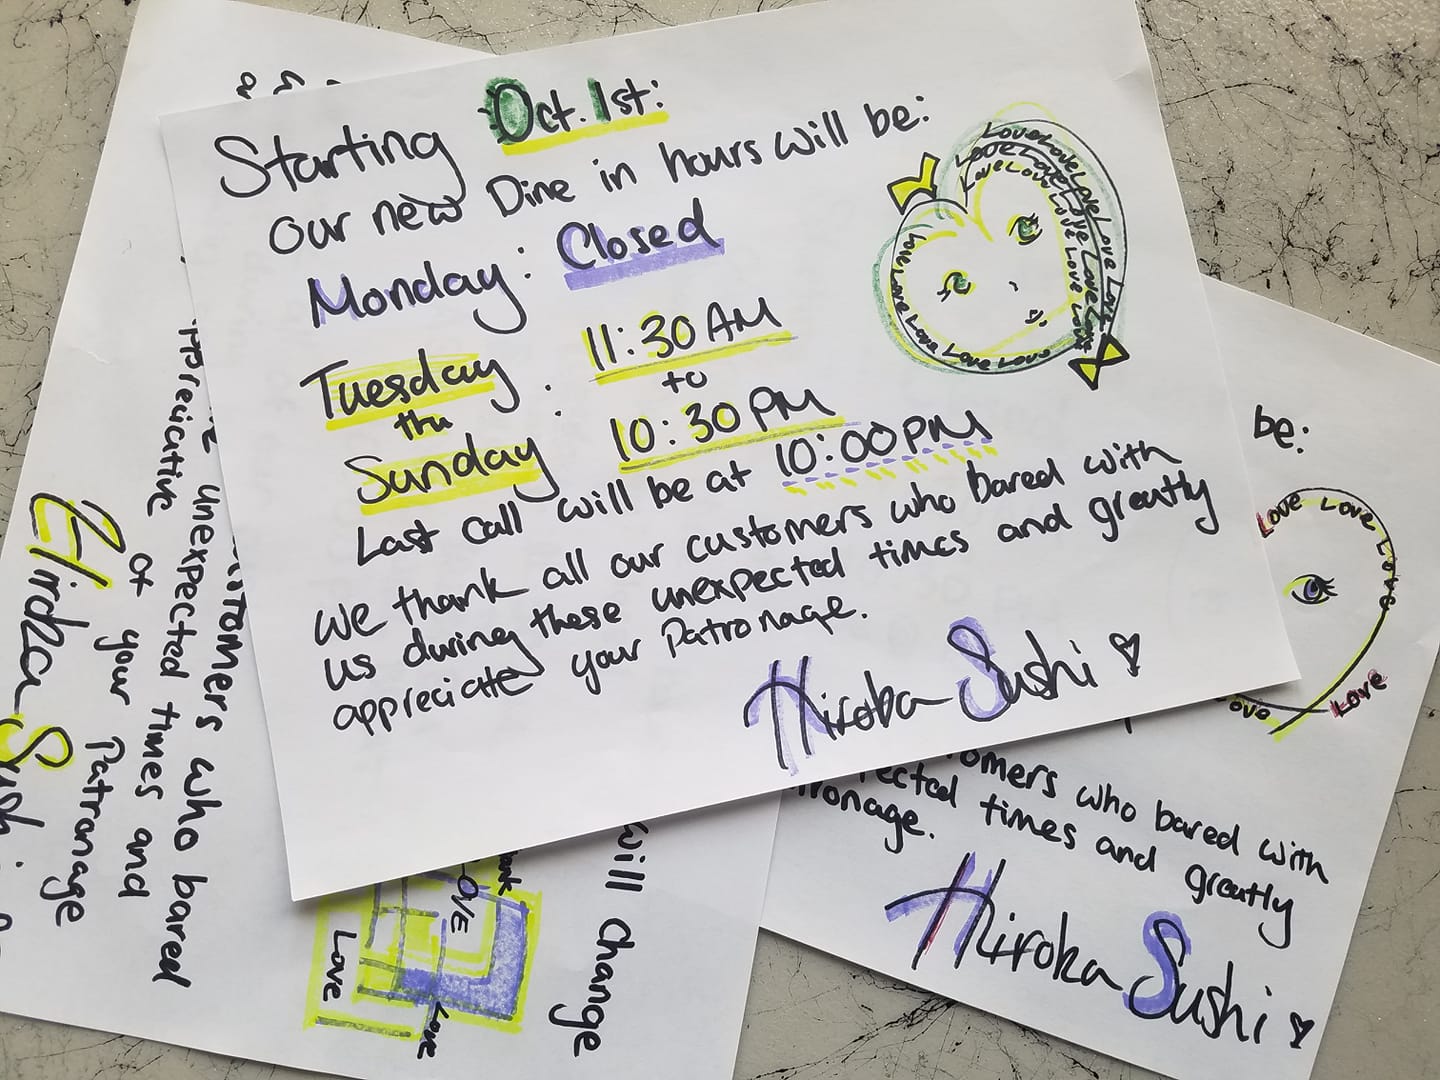 Starting Oct. 1st:
our new Dine in hours will be:
Monday: Closed
Tuesday thru Sunday : 11:30 AM to 10:30 PM
Last call will be at 10:00 PM
We thank all our customers who bared with
us during these unexpected times and greatly
appreciate your Patronage.
Hiroka Sushi
Love Love Love Love Love Love Love Love
Love Love Love Love Love Love
be:
Love Love Love
Love
Love
omers who bared with
ected times and greatly
ronage.
Hiroka Sushi
will change
tomers who bared
unexpected times and
appreciative of your Patranage
Hiroka Sushi
Love
Love
Love